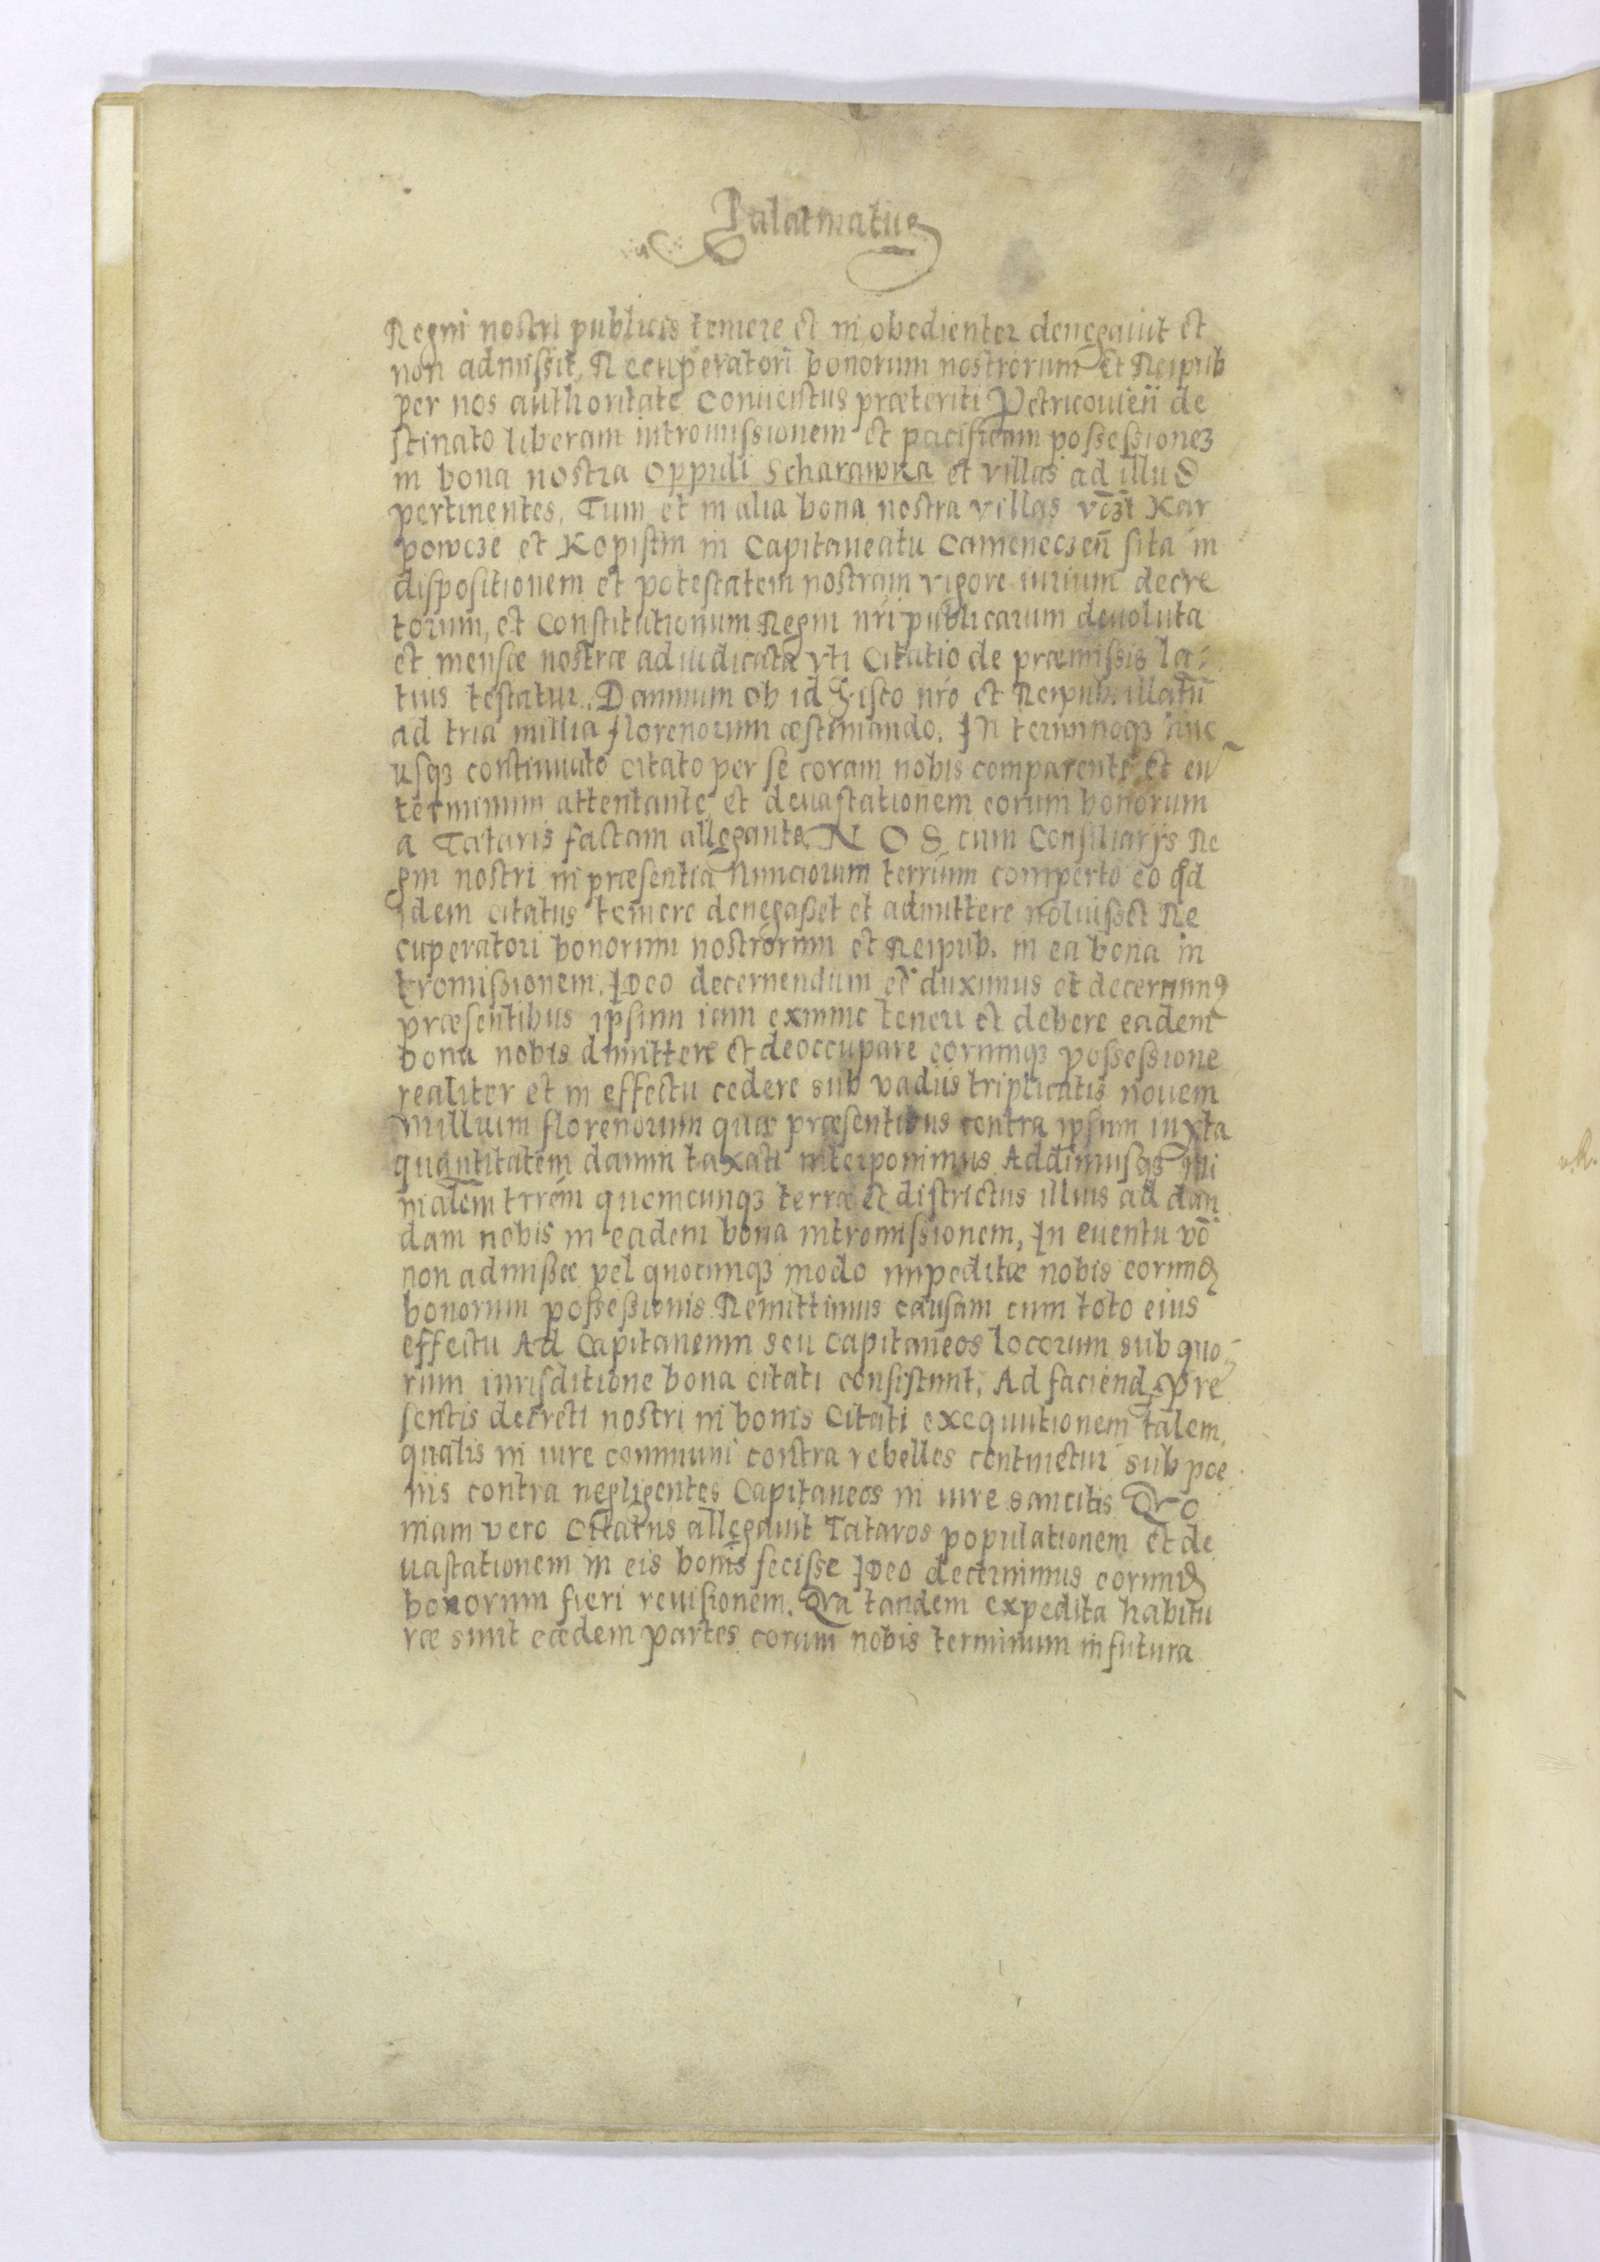 Palatinatus
Regni nostri publicis temere et in obedienter denegavit et
non admissit, Recuperatori bonorum nostrorum et Reipub
per nos authoritate Conventus præteriti Petricovień de
stinato liberam intromissionem et pacificam possessionez
in bona nostra oppidi Scharawka et villas ad illud
pertinentes. Tum et in alia bona nostra villas vcz̄t Kar
powcze et Kopistin in Capitaneatu Cameneczeñ sita in
dispositionem et potestatem nostram vigore iurium decre
torum, et Constitutionum Regni nri publicarum devoluta
et mensæ nostræ adiudicata vti Citatio de præmissis la-
tius testatur. Damnum ob id Fisco nro et Reipub. illatū
ad tria millia florenorum æstimando. In terminoqz huc
usqz continuato citato per se coram nobis comparente et eū
terminum attentante et devastationem eorum bonorum
a Tataris factam allegante. NOS cum Consiliarijs Re
gni nostri in præsentia Nunciorum terrium comperto eo qd
idem citatus temere denegasset et admittere noluisset Re
cuperatori bonorum nostrorum et Reipub. in ea bona in
tromissionem. Ideo decernendum eē duximus et decernimꝰ
præsentibus ipsum iam exnunc teneri et debere eadem
bona nobis dimittere et deoccupare eorumqz possessione
realiter et in effectu cedere sub vadiis triplicatis novem
millium florenorum quæ præsentibus contra ipsum iuxta
quantitatem damni taxati interponimus Addimusqz mi
nialem trrem quemcunqz terræ et districtus illius ad dan
dam nobis in eadem bona intromissionem, In eventu vō
non admissæ vel quocunqz modo impeditæ nobis eorund
bonorum possessionis Remittimus causam cum toto eius
effectu Ad Capitaneum seu Capitaneos locorum sub quo-
rum iurisditione bona citati consistunt, Ad faciend præ
sentis decreti nostri in bonis Citati exequutionem talem,
qualis in iure communi contra rebelles continetur sub poe
nis contra negligentes Capitaneos in iure sancitis Quo
niam vero Citatus allegavit Tataros populationem et de
vastationem in eis bonis fecisse Ideo decernimus eorund
bonorum fieri revisionem. Qua tandem expedita habitu
ræ sunt eædem partes coram nobis terminum in futura